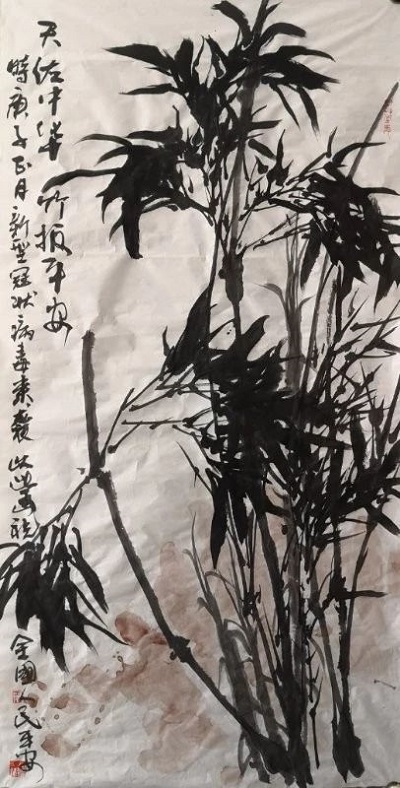 天佑中華 竹报平安
時庚子正月新型冠状病毒来袭 此祝
全國人民平安